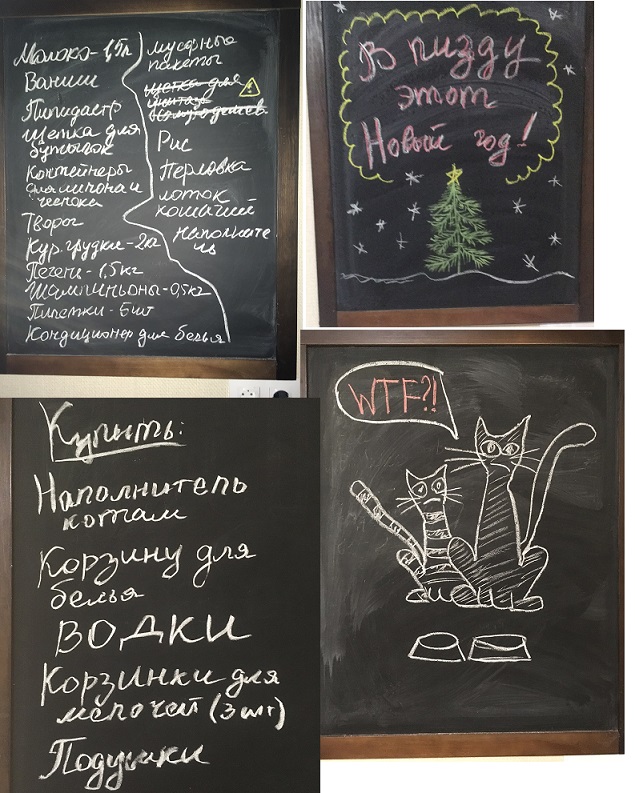 Молоко - 1,5л
Ваниш
Пипидастр
щетка для
бутылок
Контейнеры
для лимона и
чеснока
Творог
Кур. грудки - 2кг
Печень - 1,5кг
Шампиньоны - 0,5кг
Пипетки - 6шт
Кондиционер для белья
мусорные
пакеты
щетка для
унитаза
Рис
Перловка
лоток
кошачий
наполните
ль
В пизду
этот
Новый год!
Купить:
Наполнитель
котам
Корзину для
белья
ВОДКИ
Корзинки для
мелочей (3шт)
Подушки
WTF?!